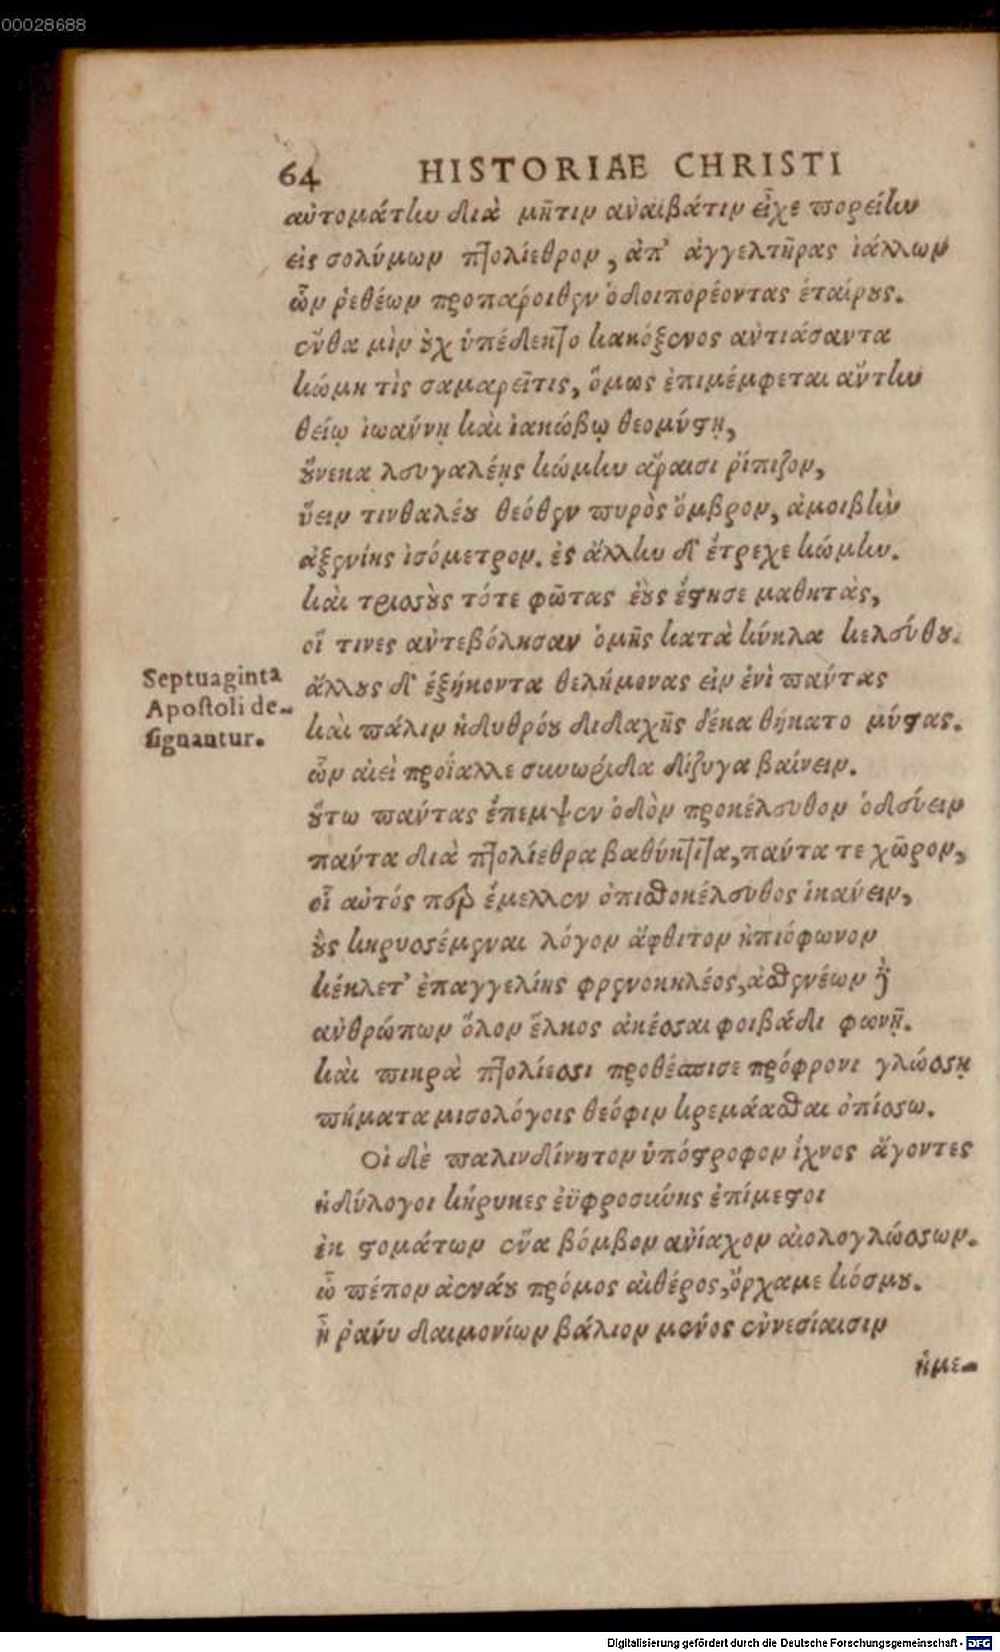 00028688
64 HISTORIAE CHRISTI
αὐτομάτην διὰ μῆτιν ἀναιβάτιν εἶχε πορείην
εἰς σολύμων πτολίεθρον, ἀπ' ἀγγελτῆρας ἰάλλων
ὧν ῥεθέων προπάροιθεν ὁδοιπορέοντας ἑταίρους.
ἔνθα μὶν οὐχ ὑπέδεκτο κακόξενος ἀντιάσαντα
κώμη τὶς σαμαρεῖτις, ὅμως ἐπιμέμφεται αὔτην
θείῳ ἰωάννῃ καὶ ἰακώβῳ θεομύστῃ,
οὕνεκα λευγαλέης κώμην ἄραισι ῥίπιζον,
ὕειν τινθαλέου θεόθεν πυρὸς ὄμβρον, ἀμοιβὴν
ἀξενίης ἰσόμετρον. ἐς ἄλλην δ' ἔτρεχε κώμην.
καὶ τρισσοὺς τότε φῶτας ἑοὺς ἔστησε μαθητὰς,
οἵ τινες ἀντεβόλησαν ὁμῆς κατὰ κύκλα κελεύθου.
Septuaginta
Apostoli de-
signantur.
ἄλλους δ' ἑξήκοντα θελήμονας εἰν ἑνὶ πάντας
καὶ πάλιν ἠδυθρόου διδαχῆς δέκα θήκατο μύστας.
ὧν αἰεὶ προΐαλλε συνωρίδα δίζυγα βαίνειν.
οὕτω πάντας ἔπεμψεν ὁδὸν προκέλευθον ὁδεύειν
πάντα διὰ πτολίεθρα βαθύκτιτα, πάντα τε χῶρον,
οἷ αὐτός περ ἔμελλεν ὀπισθοκέλευθος ἱκάνειν,
οὓς κηρυσσέμεναι λόγον ἄφθιτον ἠπιόφωνον
κέκλετ' ἐπαγγελίης φρενοκηλέος, ἀσθενέων τ'
ἀνθρώπων ὅλον ἕλκος ἀκέσσαι φοιβάδι φωνῇ.
καὶ πικρὰ πτολίεσσι προθέσπισε πρόφρονι γλώσσῃ
πήματα μισολόγοις θεόφιν κρεμάασθαι ὀπίσσω.
Οἱ δὲ παλινδίνητον ὑπόστροφον ἴχνος ἄγοντες
ἡδύλογοι κήρυκες ἐϋφροσύνης ἐπίμεστοι
ἐκ στομάτων ἕνα βόμβον ἀνίαχον αἰολογλώσσων.
ὦ πέπον ἀενάου πρόμος αἰθέρος, ὄρχαμε κόσμου.
ἦ ῥάνυ δαιμονίων βάλιον μένος ἐννεσίαισιν
ἡμε-
Digitalisierung gefördert durch die Deutsche Forschungsgemeinschaft - DFG